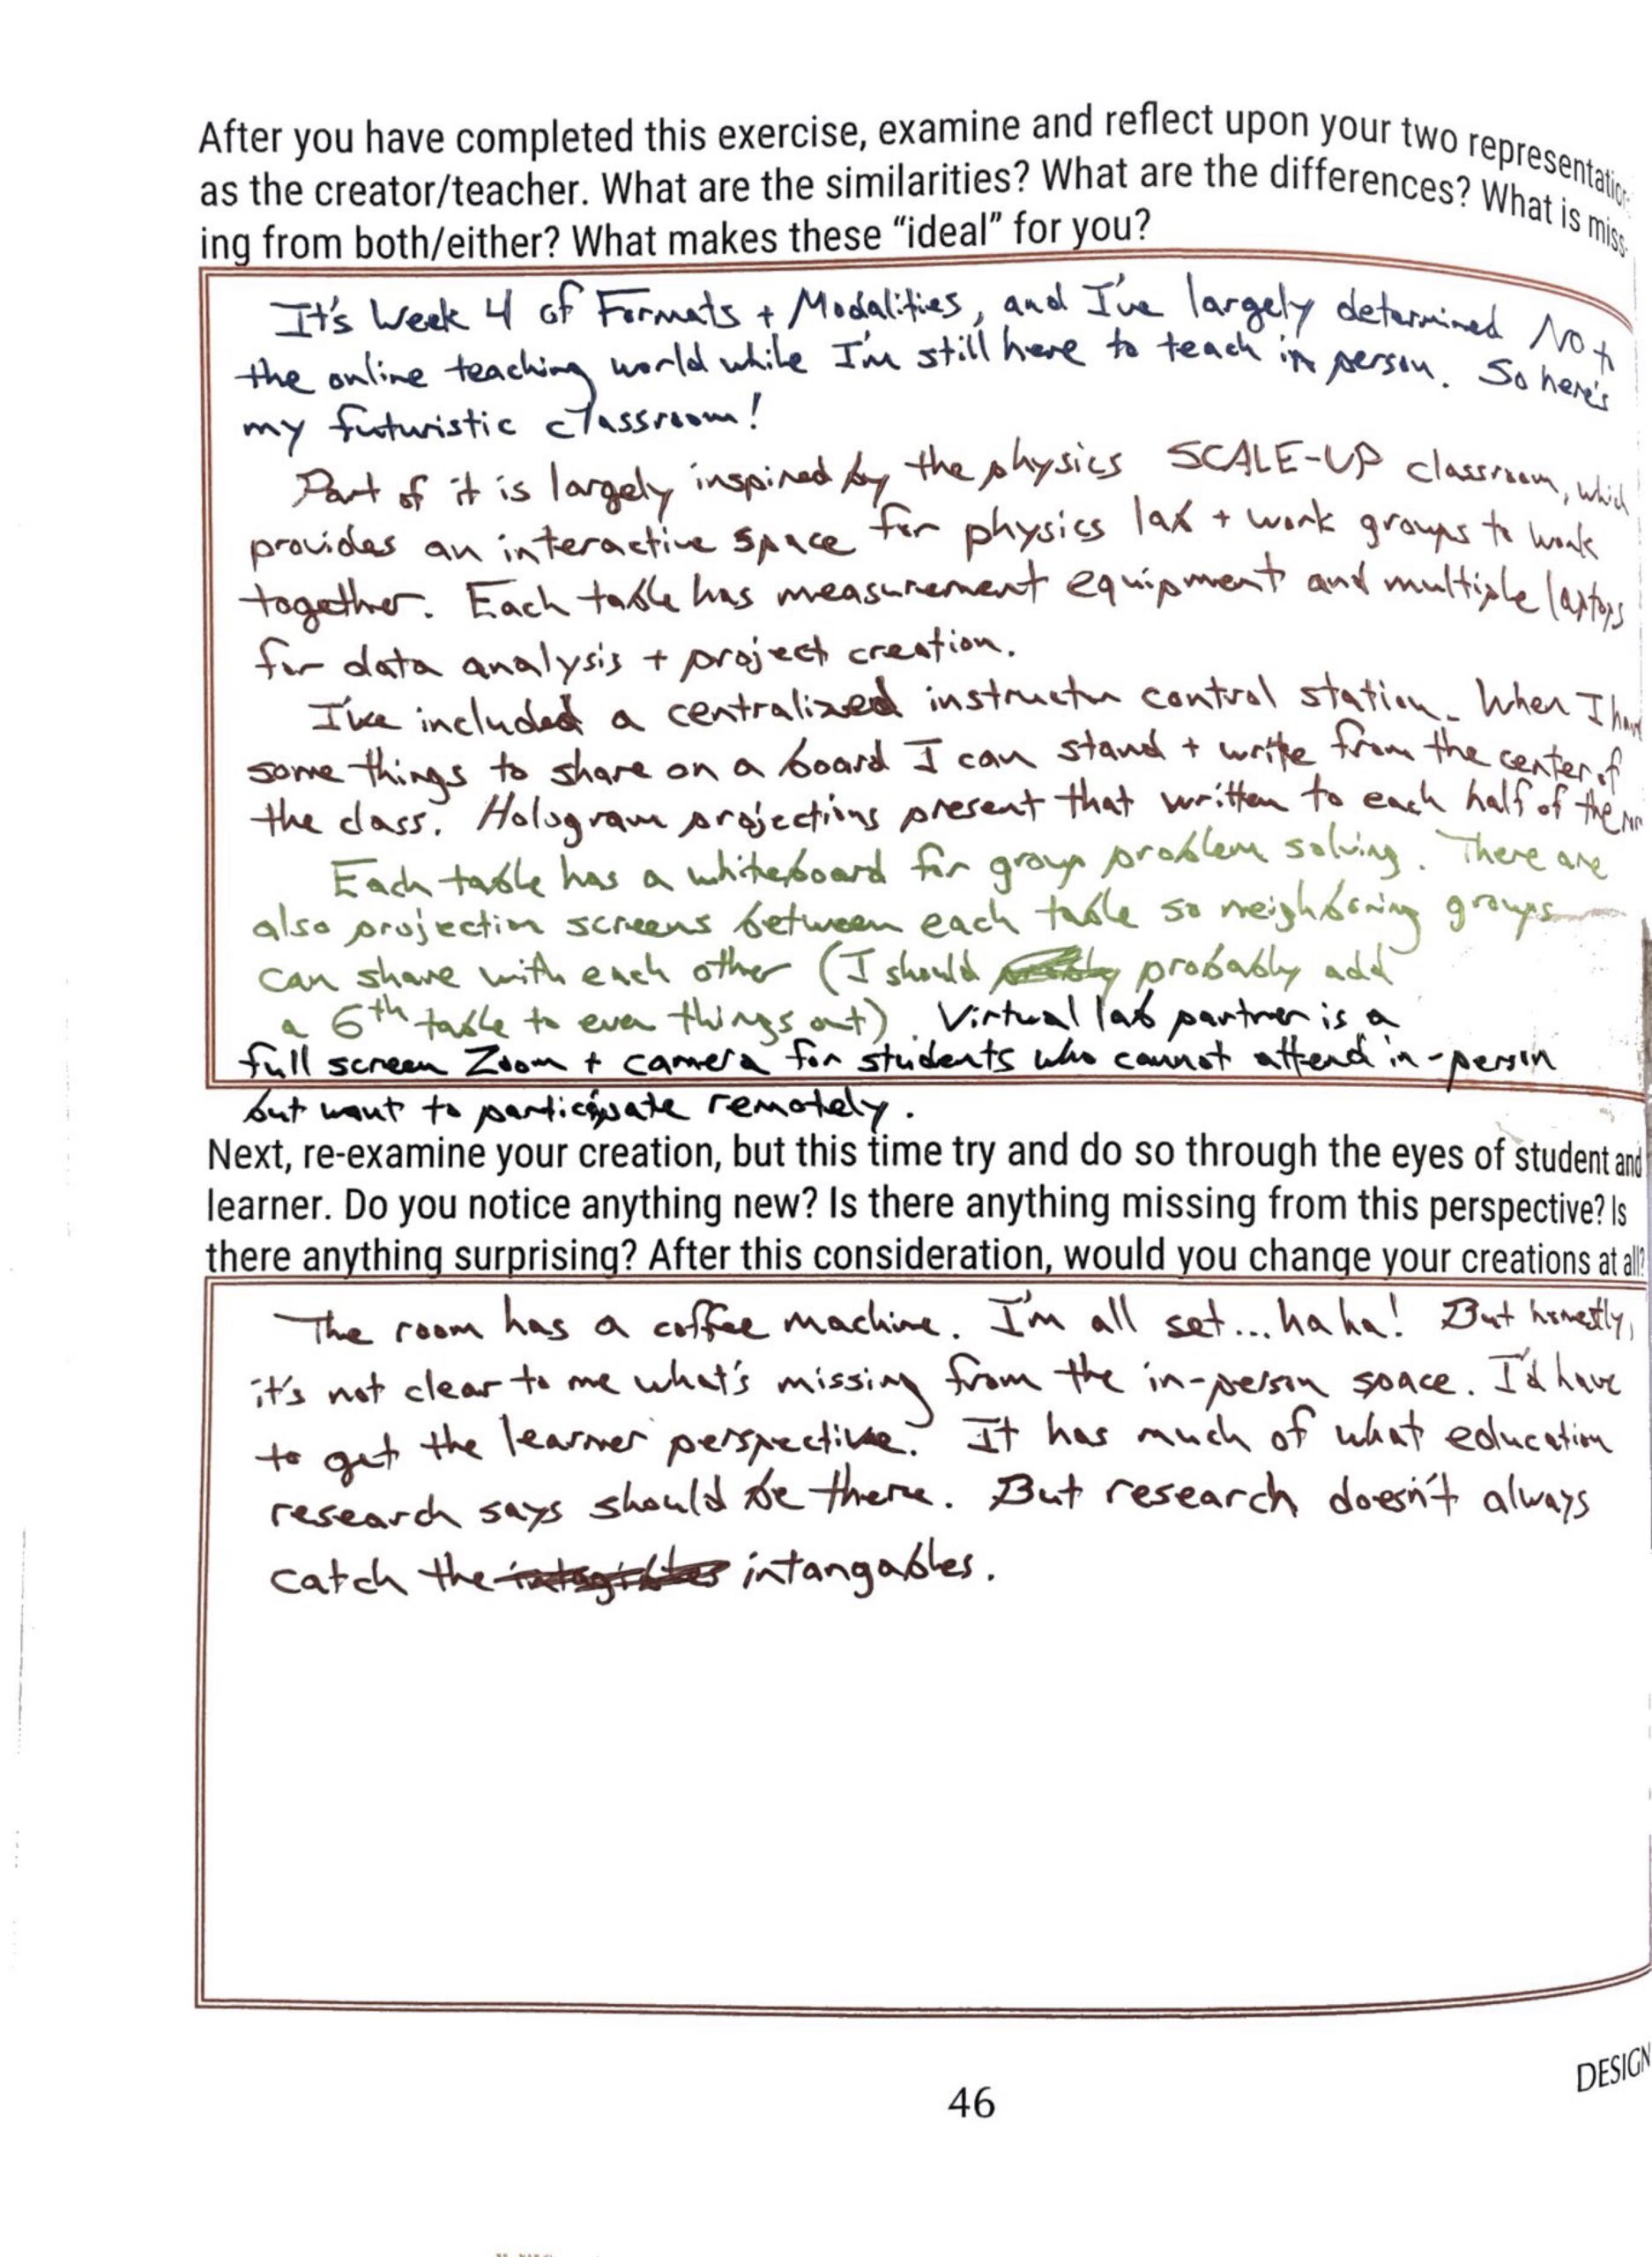 After you have completed this exercise, examine and reflect upon your two representation
as the creator/teacher. What are the similarities? What are the differences? What is miss-
ing from both/either? What makes these “ideal” for you?
It's Week 4 of Formats + Modalities, and I've largely determined Not
the online teaching world while I'm still here to teach in person. So here's
my futuristic classroom!
Part of it is largely inspired by the physics SCALE-UP classroom, which
provides an interactive space for physics lab + work groups to work
together. Each table has measurement equipment and multiple laptops
for data analysis + project creation.
I've included a centralized instructor control station. When I have
some things to share on a board I can stand + write from the center of
the class. Hologram projections present that written to each half of the
Each table has a whiteboard for group problem solving. There are
also projection screens between each table so neighboring groups
can share with each other (I should probably add
a 6th table to even things out). Virtual lab partner is a
full screen Zoom + camera for students who cannot attend in-person
but want to participate remotely.
Next, re-examine your creation, but this time try and do so through the eyes of student and
learner. Do you notice anything new? Is there anything missing from this perspective? Is
there anything surprising? After this consideration, would you change your creations at all?
The room has a coffee machine. I'm all set... haha! But honestly,
it's not clear to me what's missing from the in-person space. I'd have
to get the learner perspective. It has much of what education
research says should be there. But research doesn't always
catch the intangables.
46
DESIGN